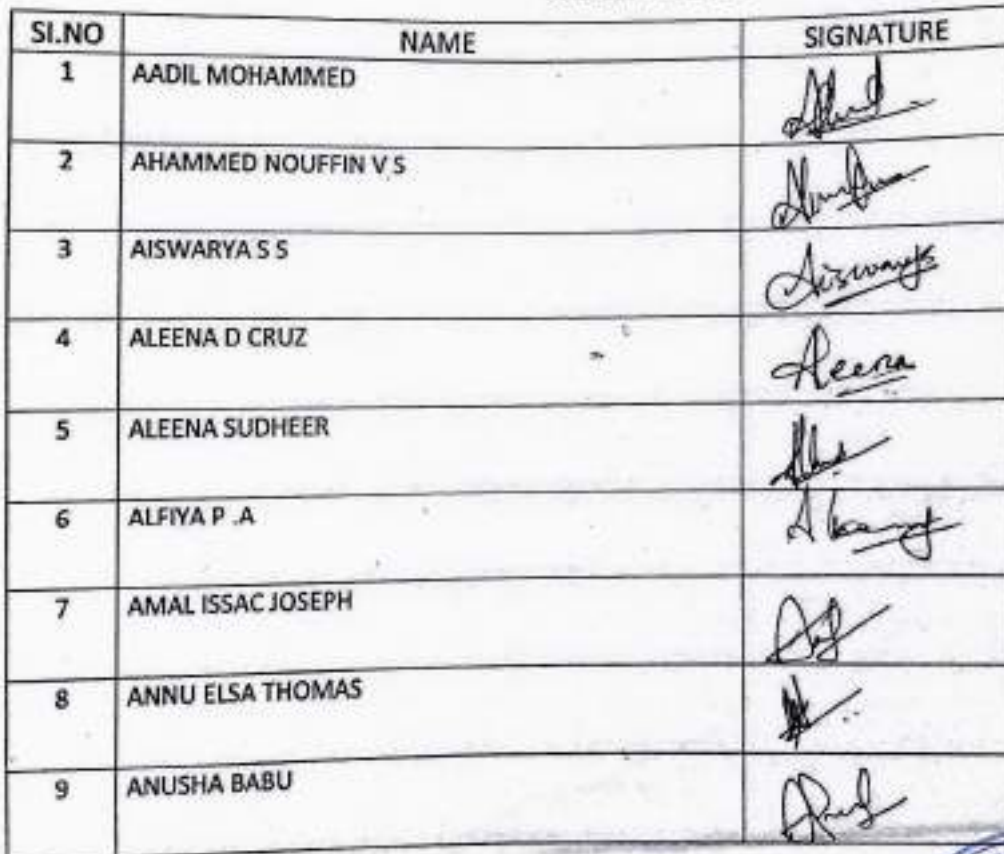 SI.NO NAME SIGNATURE
1 AADIL MOHAMMED
2 AHAMMED NOUFFIN V S
3 AISWARYA S S Aiswarya
4 ALEENA D CRUZ Aleena
5 ALEENA SUDHEER
6 ALFIYA P .A
7 AMAL ISSAC JOSEPH
8 ANNU ELSA THOMAS
9 ANUSHA BABU